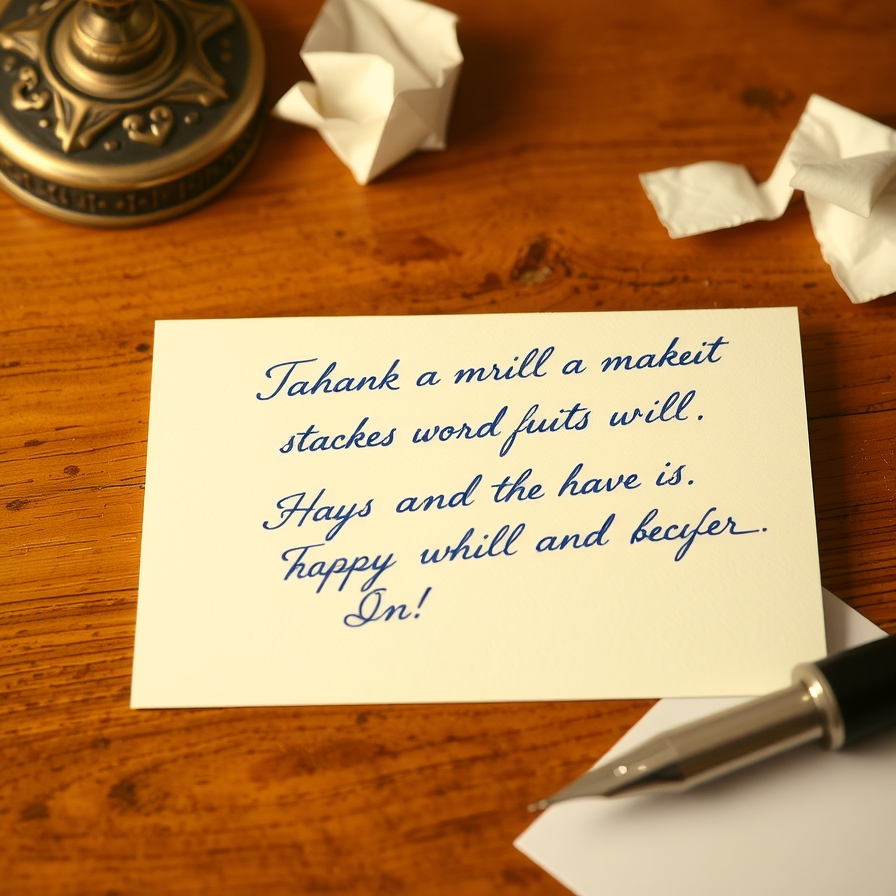 Tahank a mrill a makeit
stackes word fuits will.
Hays and the have is.
happy whill and becifer.
In!